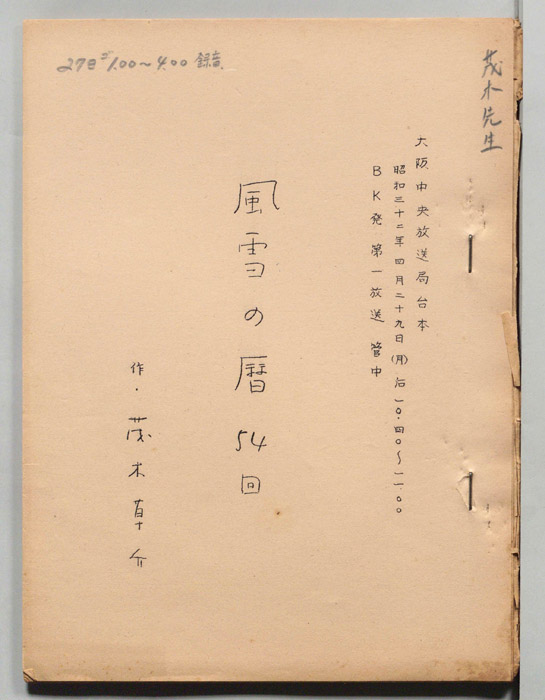 茂木先生
大阪中央放送局台本
昭和三十二年四月二十九日(月)后一〇.四〇〜一一.〇〇
BK発第一放送管中
風雪の暦 54回
作・茂木草介
27日 1.00〜4.00 録音